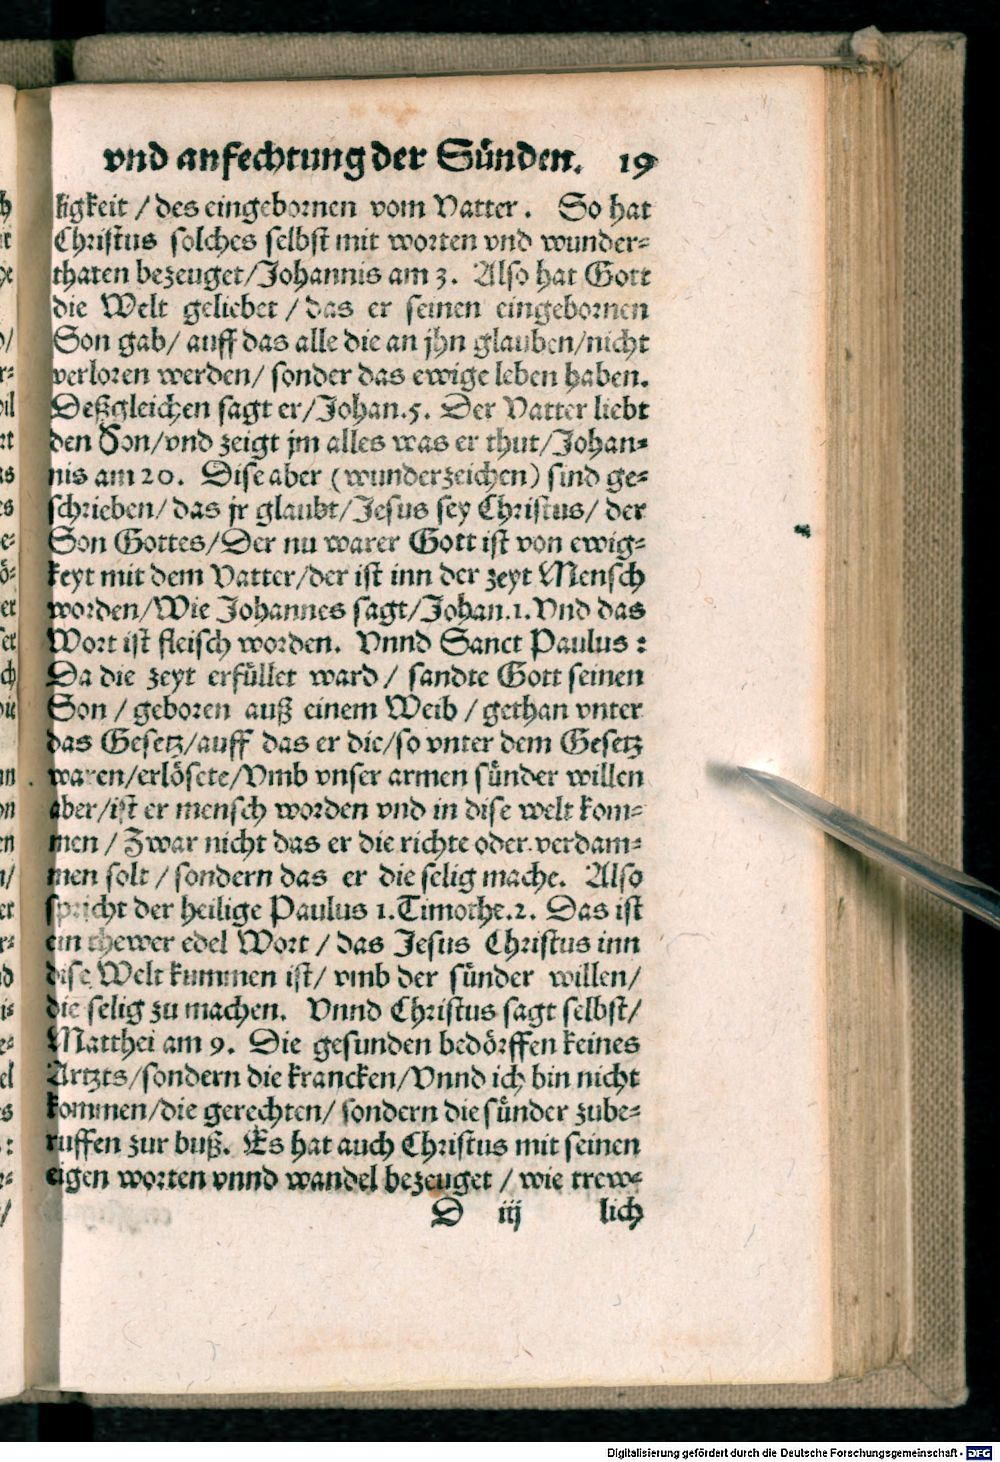 vnd anfechtung der Sünden. 19
ligkeit / des eingebornen vom Vatter. So hat
Christus solches selbst mit worten vnd wunder-
thaten bezeuget/Johannis am 3. Also hat Gott
die Welt geliebet / das er seinen eingebornen
Son gab/ auff das alle die an jhn glauben/nicht
verloren werden/ sonder das ewige leben haben.
Deßgleichen sagt er/Johan.5. Der Vatter liebt
den Son/vnd zeigt jm alles was er thut/Johan-
nis am 20. Dise aber (wunderzeichen) sind ge-
schrieben/ das jr glaubt/Jesus sey Christus/ der
Son Gottes/Der nu warer Gott ist von ewig-
keyt mit dem Vatter/der ist inn der zeyt Mensch
worden/Wie Johannes sagt/Johan.1.Vnd das
Wort ist fleisch worden. Vnnd Sanct Paulus:
Da die zeyt erfüllet ward / sandte Gott seinen
Son / geboren auß einem Weib / gethan vnter
das Gesetz/auff das er die/so vnter dem Gesetz
waren/erlösete/Vmb vnser armen sünder willen
aber/ist er mensch worden vnd in dise welt kom-
men / Zwar nicht das er die richte oder verdam-
men solt / sondern das er die selig mache. Also
spricht der heilige Paulus 1.Timothe.2. Das ist
ein thewer edel Wort / das Jesus Christus inn
dise Welt kummen ist/ vmb der sünder willen/
die selig zu machen. Vnnd Christus sagt selbst/
Matthei am 9. Die gesunden bedörffen keines
Artzts/sondern die krancken/Vnnd ich bin nicht
kommen/die gerechten/ sondern die sünder zube-
ruffen zur buß. Es hat auch Christus mit seinen
eigen worten vnnd wandel bezeuget / wie trew-
D iij lich
Digitalisierung gefördert durch die Deutsche Forschungsgemeinschaft - DFG